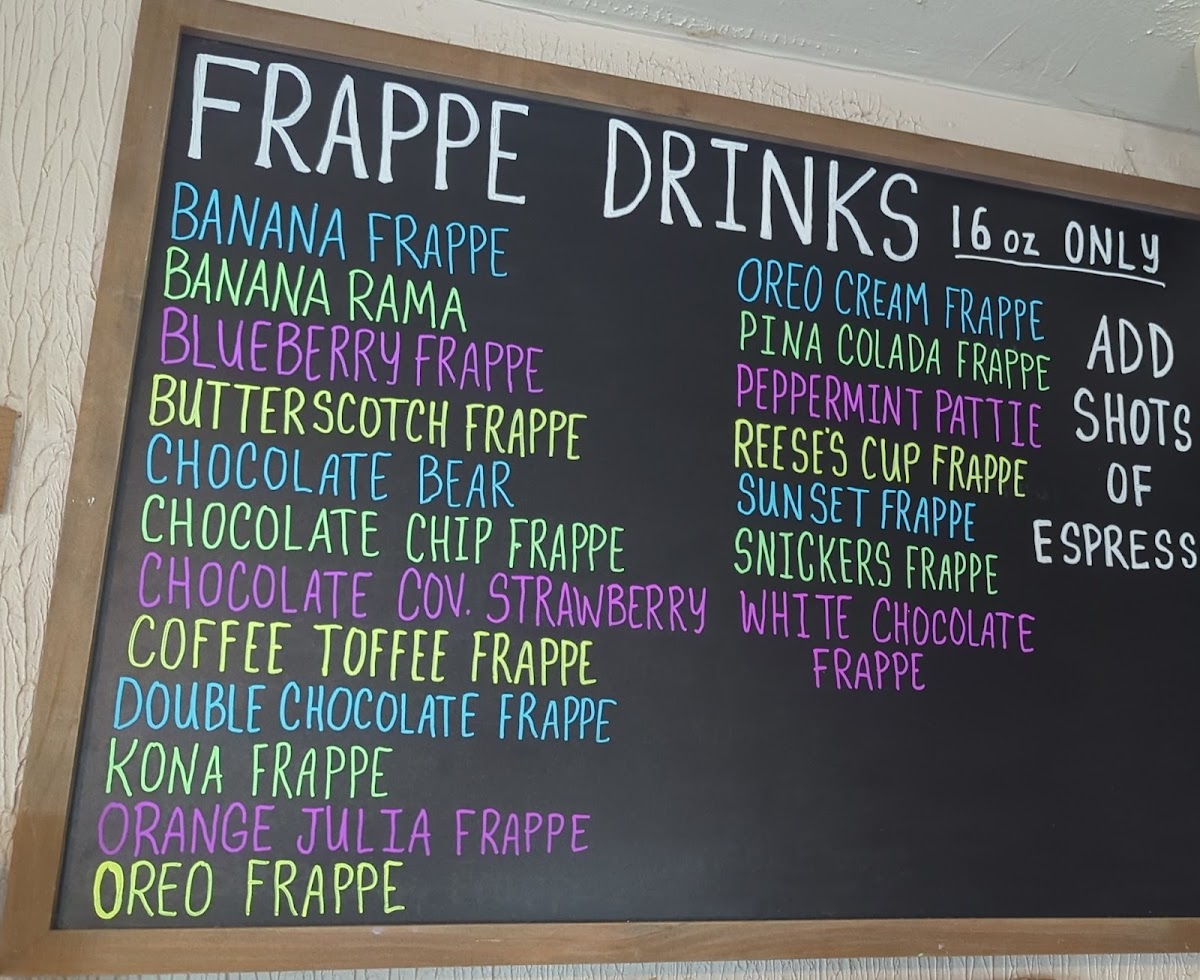 FRAPPE DRINKS 16 oz ONLY
BANANA FRAPPE
BANANA RAMA
BLUEBERRY FRAPPE
BUTTERSCOTCH FRAPPE
CHOCOLATE BEAR
CHOCOLATE CHIP FRAPPE
CHOCOLATE COV. STRAWBERRY
COFFEE TOFFEE FRAPPE
DOUBLE CHOCOLATE FRAPPE
KONA FRAPPE
ORANGE JULIA FRAPPE
OREO FRAPPE
OREO CREAM FRAPPE
PINA COLADA FRAPPE
PEPPERMINT PATTIE
REESE'S CUP FRAPPE
SUNSET FRAPPE
SNICKERS FRAPPE
WHITE CHOCOLATE
FRAPPE
ADD
SHOTS
OF
ESPRESS